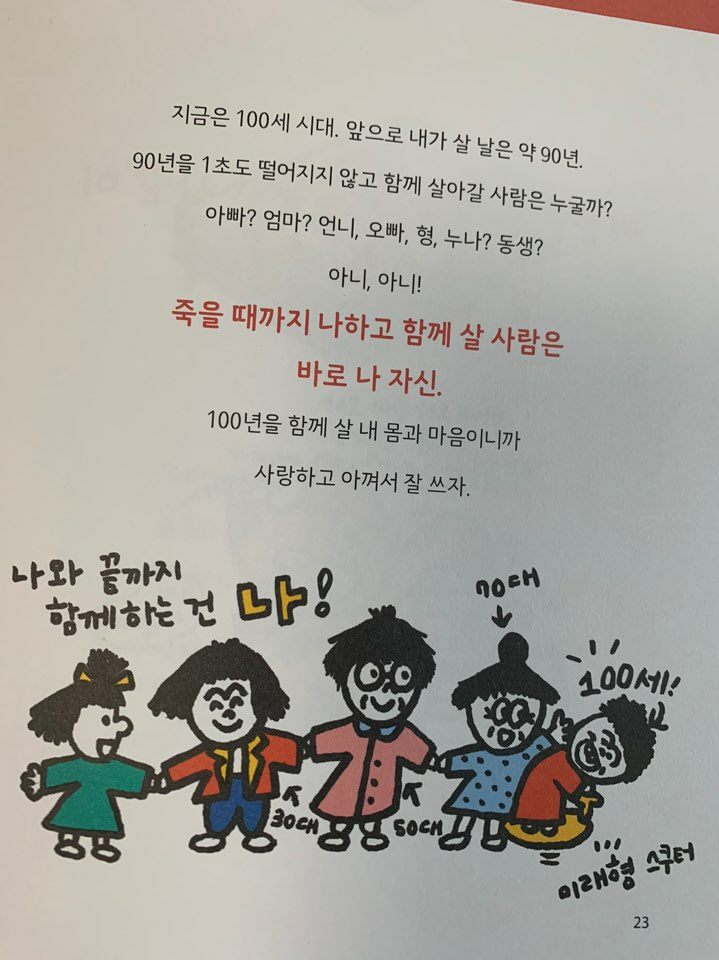 지금은 100세 시대. 앞으로 내가 살 날은 약 90년.
90년을 1초도 떨어지지 않고 함께 살아갈 사람은 누굴까?
아빠? 엄마? 언니, 오빠, 형, 누나? 동생?
아니, 아니!
죽을 때까지 나하고 함께 살 사람은
바로 나 자신.
100년을 함께 살 내 몸과 마음이니까
사랑하고 아껴서 잘 쓰자.
나와 끝까지
함께하는 건 나!
70대
100세!
30대
50대
미래형 스쿠터
23